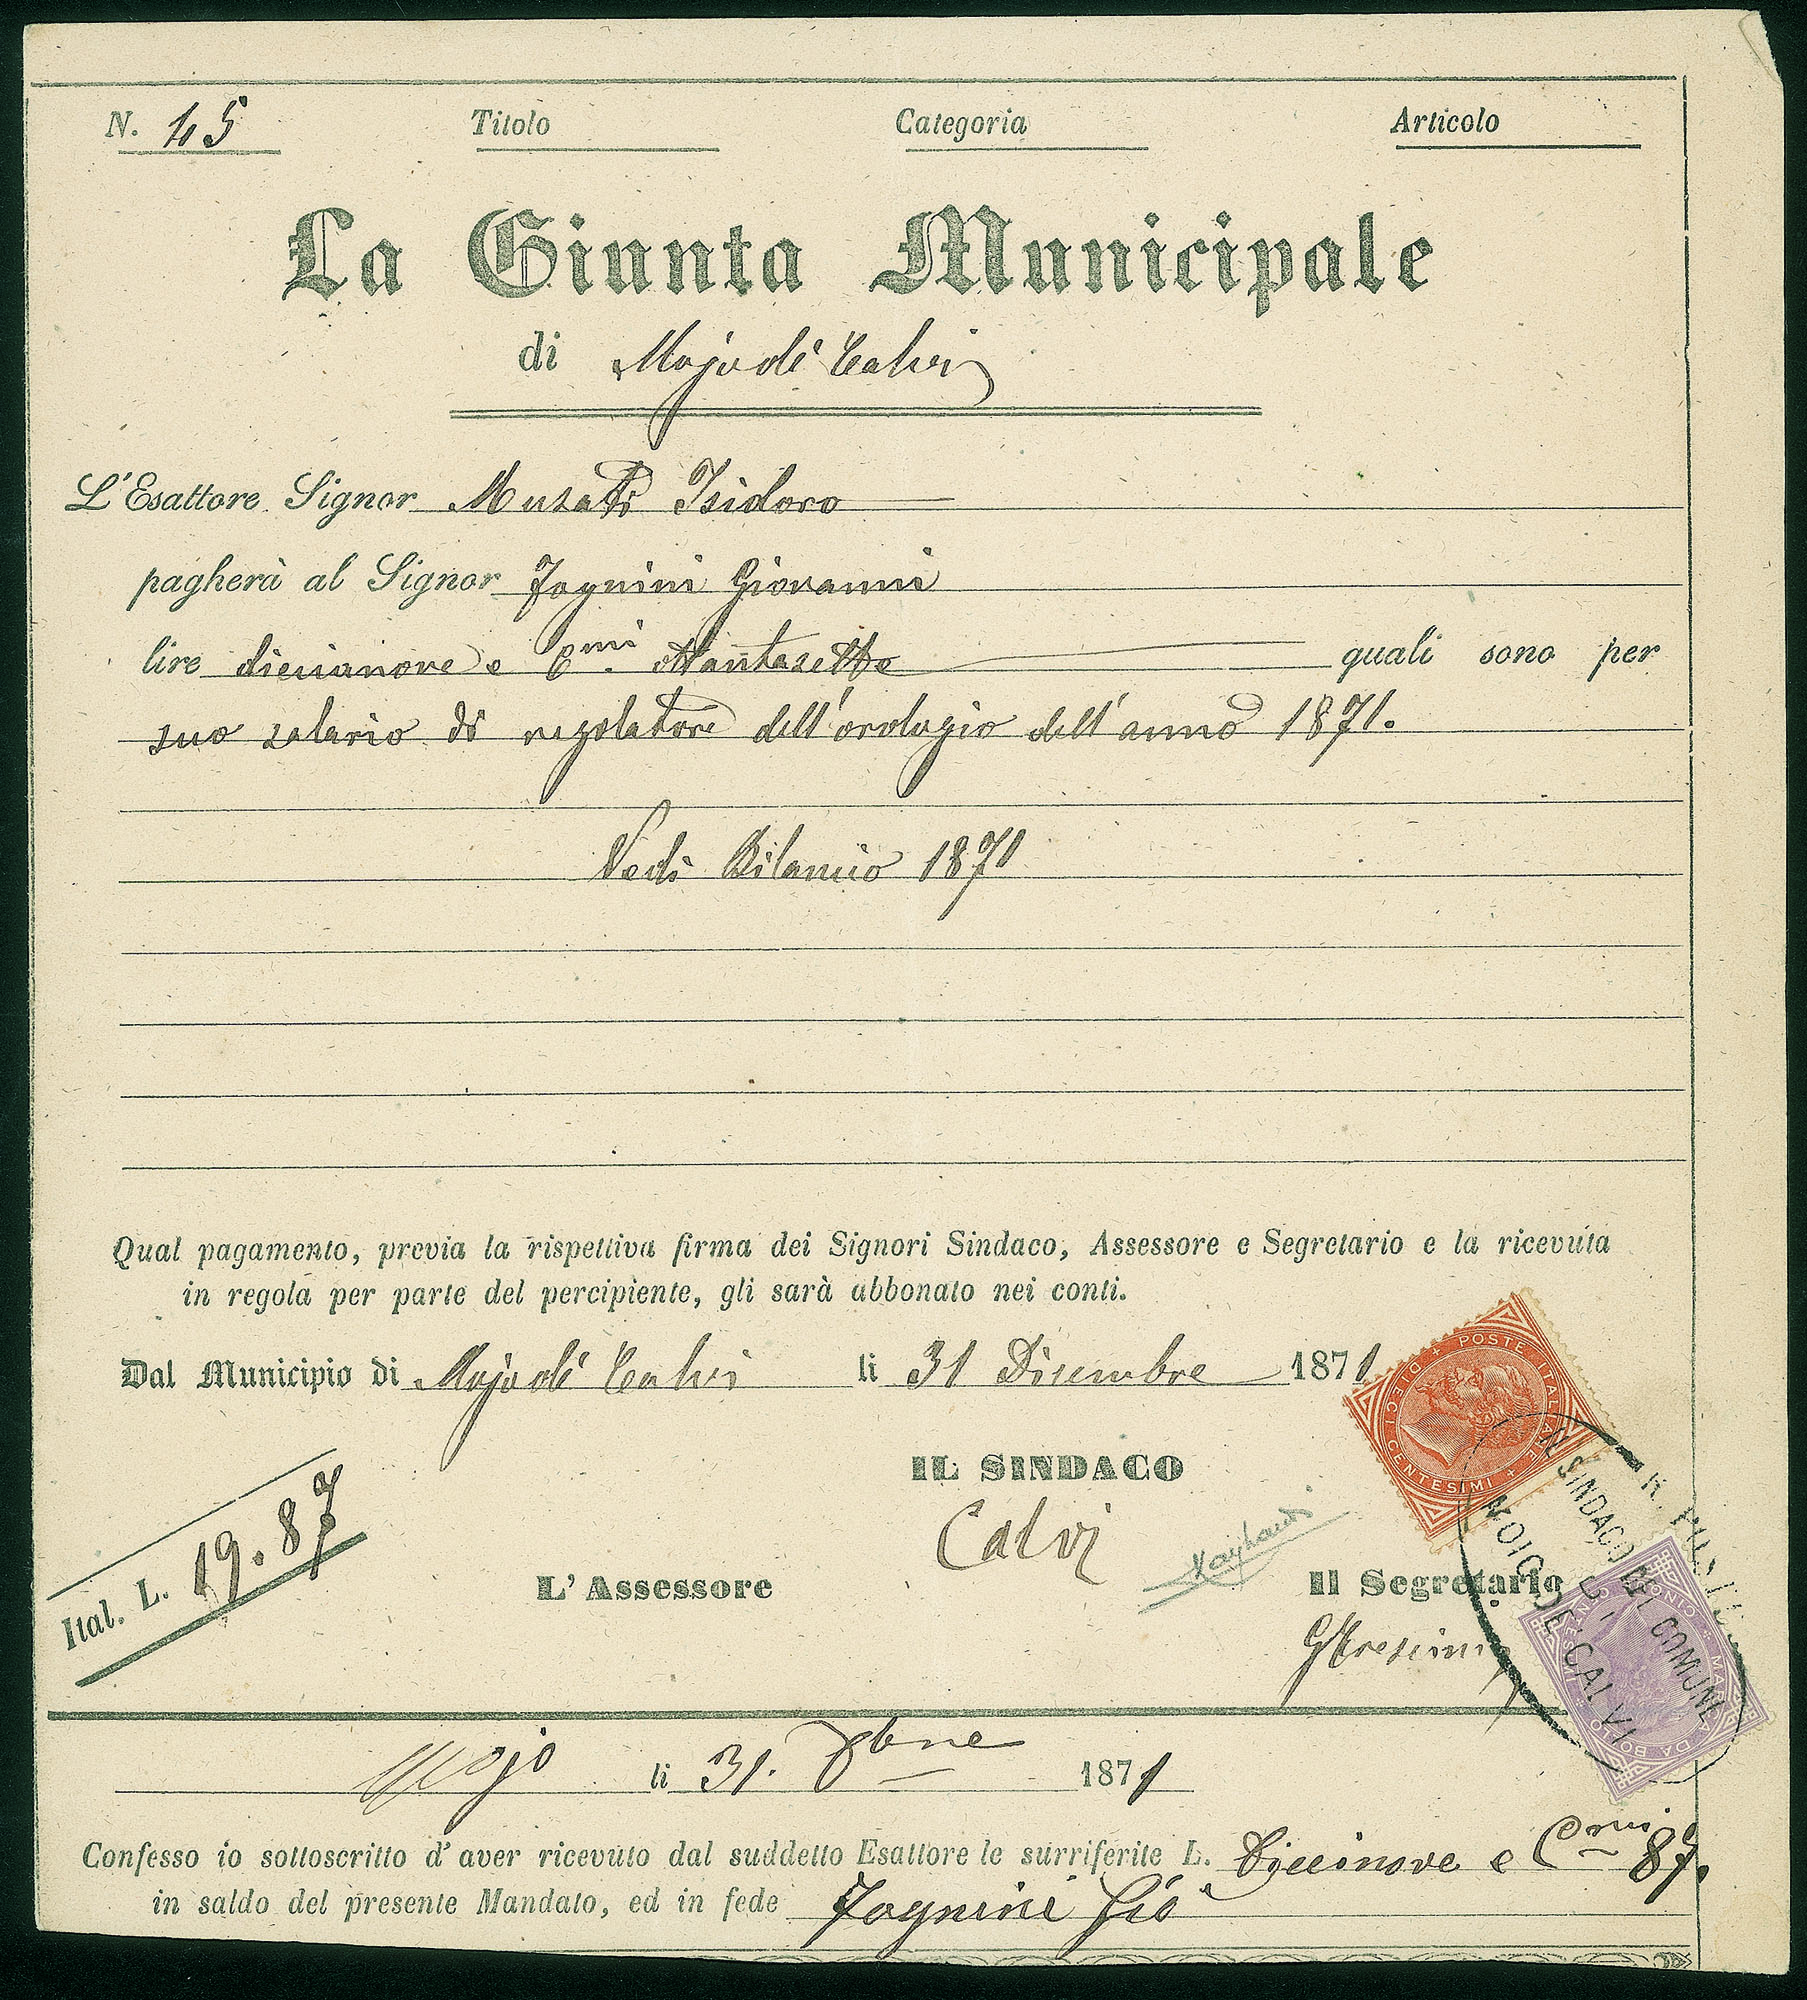 N. 45 Titolo Categoria Articolo
La Giunta Municipale
di Mojo de' Calvi
L'Esattore Signor Musati Isidoro
pagherà al Signor Fognini Giovanni
lire diecianove e Cmi. ottantasette quali sono per
suo salario di regolatore dell'orologio dell'anno 1871.
Vedi Bilancio 1871
Qual pagamento, previa la rispettiva firma dei Signori Sindaco, Assessore e Segretario e la ricevuta
in regola per parte del percipiente, gli sarà abbonato nei conti.
Dal Municipio di Mojo de' Calvi li 31 Dicembre 1871
POSTE ITALIANE + DIECI CENTESIMI +
IL SINDACO
Calvi
Ital. L. 19.87
L'Assessore
Il Segretario
IL SINDACO DEL COMUNE
DI
MOIO DE' CALVI
MARCA DA BOLLO CINQUE CENTESIMI
Mojo li 31. Xbre 1871
Confesso io sottoscritto d'aver ricevuto dal suddetto Esattore le surriferite L. Diecinove e Cmi 87.
in saldo del presente Mandato, ed in fede Fognini Gio